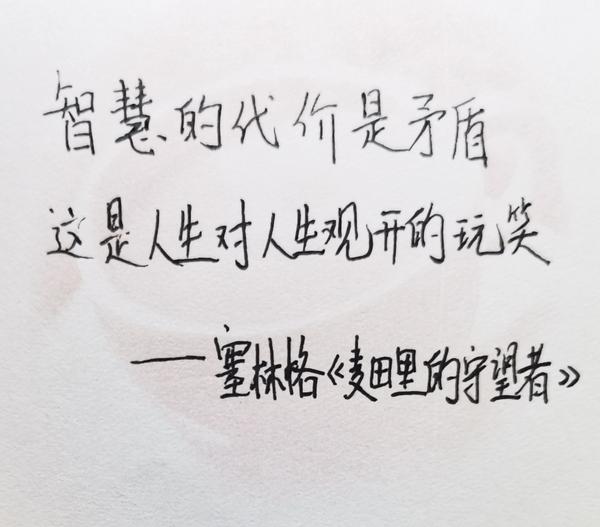 智慧的代价是矛盾
这是人生对人生观开的玩笑
——塞林格《麦田里的守望者》